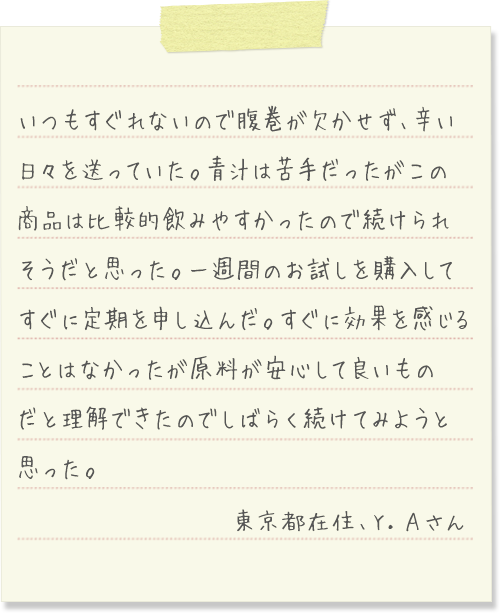 いつもすぐれないので腹巻が欠かせず、辛い
日々を送っていた。青汁は苦手だったがこの
商品は比較的飲みやすかったので続けられ
そうだと思った。一週間のお試しを購入して
すぐに定期を申し込んだ。すぐに効果を感じる
ことはなかったが原料が安心して良いもの
だと理解できたのでしばらく続けてみようと
思った。
東京都在住、Y. Aさん